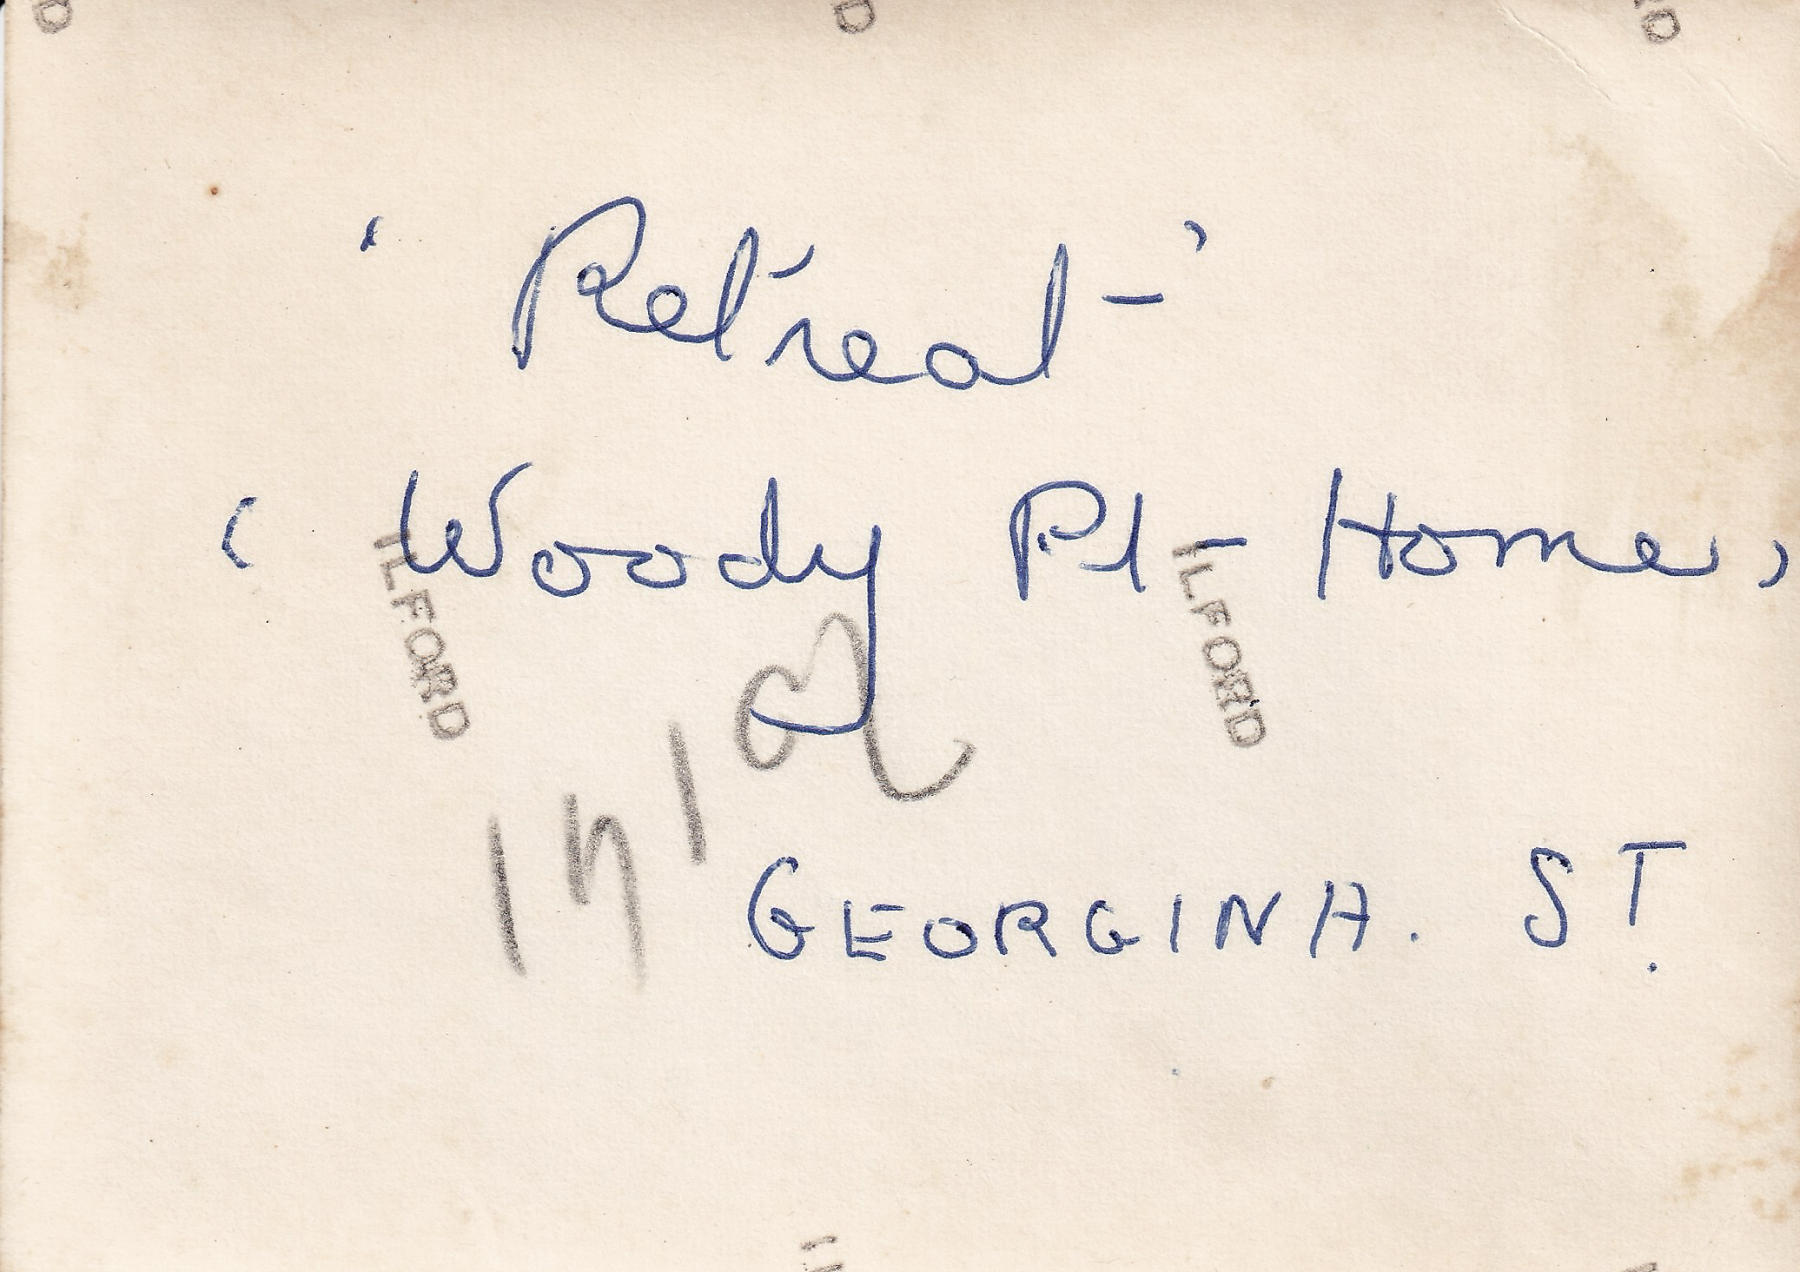 D D RD
' Retreat '
( Woody Pt Home )
ILFORD ILFORD
GEORGINA. ST.